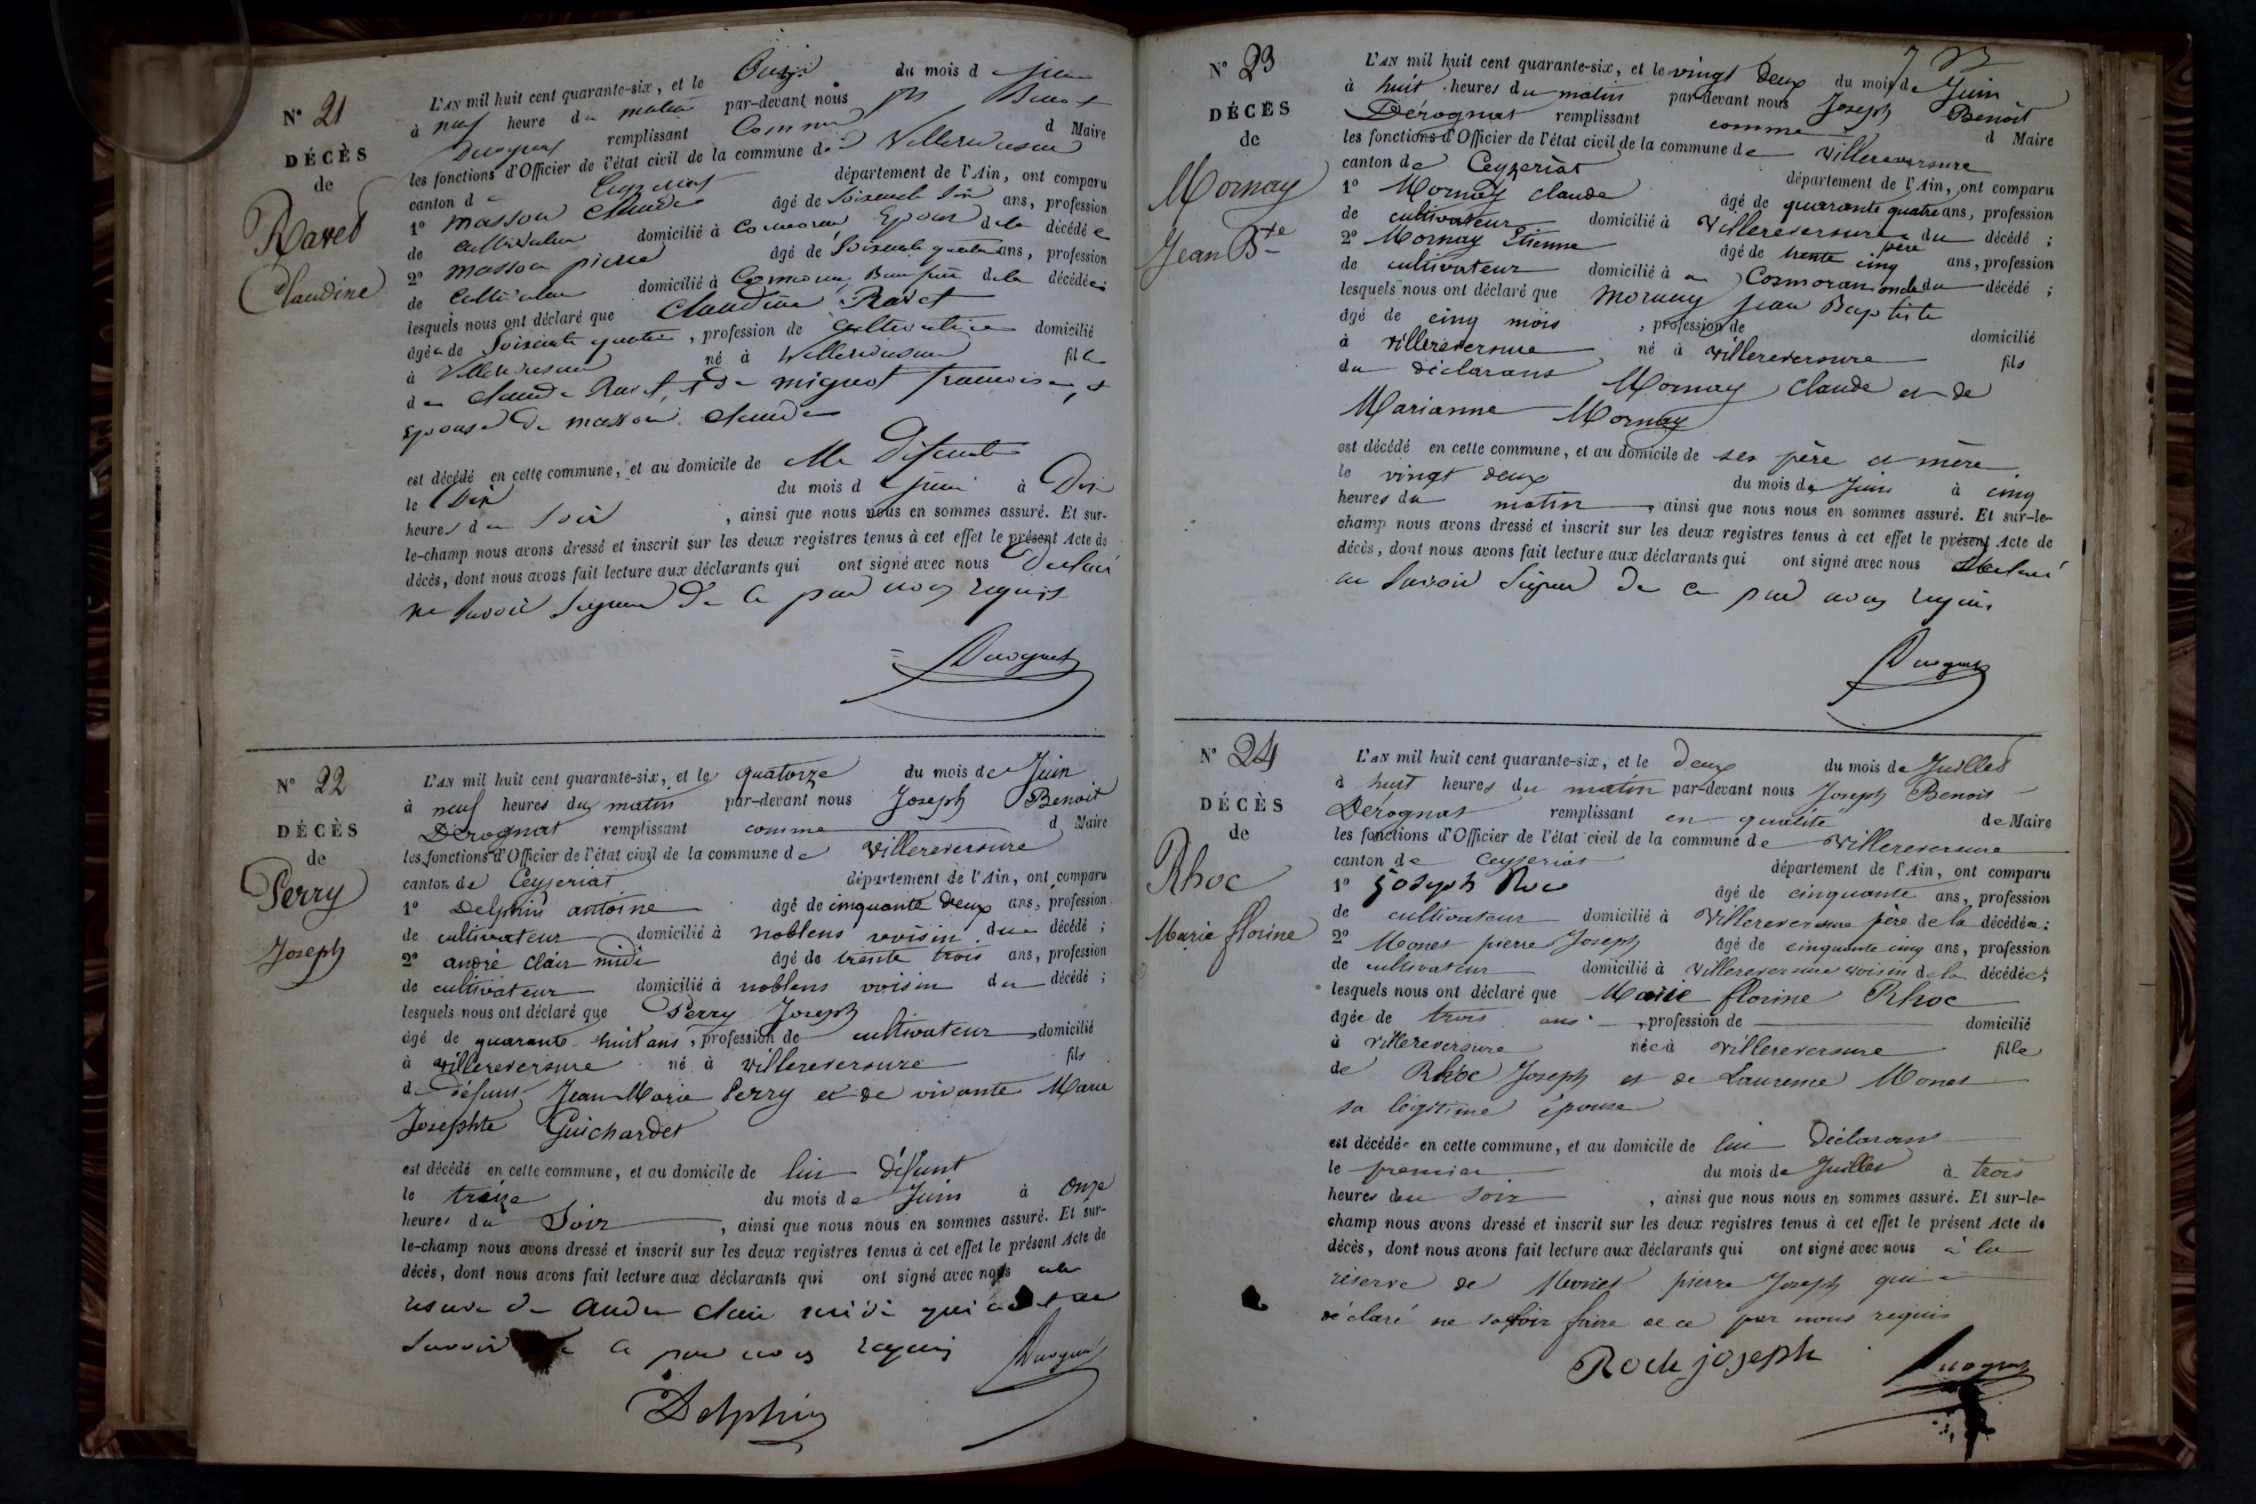 N° 21
DÉCÈS
de
Ravet
Claudine
L'AN mil huit cent quarante-six, et le Onze du mois d juin
à neuf heure du matin par-devant nous Jh Benoit
Derognat remplissant Comme d Maire
les fonctions d'Officier de l'état civil de la commune de Villereversure
canton de Ceyzeriat département de l'Ain, ont comparu
1° masson Claude âgé de Soixante Six ans, profession
de cultivateur domicilié à Cormoran Epoux dela décédée
2° masson pierre âgé de Soixante quatre ans, profession
de Cultivateur domicilié à Cormoran Beau frère dela décédée;
lesquels nous ont déclaré que Claudine Ravet
âgée de Soixante quatre, profession de Cultivatrice domicilié
à Villereversure né à Villereversure fille
de Claude Ravet, & De mignot francoise, &
Epouse De masson Claude
est décédé en cette commune, et au domicile de Me Défunte
le Dix du mois d juin à Dix
heures du Soir, ainsi que nous nous en sommes assuré. Et sur-
le-champ nous avons dressé et inscrit sur les deux registres tenus à cet effet le présent Acte de
décès, dont nous avons fait lecture aux déclarants qui ont signé avec nous Declaré
ne Savoir Signer De Ce par nous requis
Derognat
N° 22
DÉCÈS
de
Perry
Joseph
L'AN mil huit cent quarante-six, et le quatorze du mois de Juin
à neuf heures du matin par-devant nous Joseph Benoit
Dérognat remplissant comme d Maire
les fonctions d'Officier de l'état civil de la commune de villereversure
canton de Ceyzeriat département de l'Ain, ont comparu
1° Delphin antoine âgé de cinquante Deux ans, profession
de cultivateur domicilié à noblens voisin du décédé;
2° andré clair midi âgé de trente trois ans, profession
de cultivateur domicilié à noblens voisin du décédé;
lesquels nous ont déclaré que Perry Joseph
âgé de quarante huit ans, profession de cultivateur domicilié
à villereversure né à villereversure fils
de Défunt Jean Marie Perry et de vivante Marie
Josephte Guichardet
est décédé en cette commune, et au domicile de lui Défunt
le treize du mois de Juin à onze
heures du Soir, ainsi que nous nous en sommes assuré. Et sur-
le-champ nous avons dressé et inscrit sur les deux registres tenus à cet effet le présent Acte de
décès, dont nous avons fait lecture aux déclarants qui ont signé avec nous ala
reserve De Andre Clair midi qui a ne
Savoir Ce par nous requis
Derognat
Delphin
N° 23
DÉCÈS
de
Mornay
Jean Bte
L'AN mil huit cent quarante-six, et le vingt Deux du mois de Juin
à huit heures du matin par-devant nous Joseph Benoit
Dérognat remplissant comme d Maire
les fonctions d'Officier de l'état civil de la commune de villereversure
canton de Ceyzeriat département de l'Ain, ont comparu
1° Mornay Claude âgé de quarante quatre ans, profession
de cultivateur domicilié à villereversure père du décédé;
2° Mornay Etienne âgé de trente cinq ans, profession
de cultivateur domicilié à Cosmoran oncle du décédé;
lesquels nous ont déclaré que Mornay Jean Baptiste
âgé de cinq mois, profession de domicilié
à villereversure né à villereversure fils
du déclarant Mornay Claude et de
Marianne Mornay
est décédé en cette commune, et au domicile de ses père et mère
le vingt deux du mois de Juin à cinq
heures du matin, ainsi que nous nous en sommes assuré. Et sur-le-
champ nous avons dressé et inscrit sur les deux registres tenus à cet effet le présent Acte de
décès, dont nous avons fait lecture aux déclarants qui ont signé avec nous Declaré
ne Savoir Signer De Ce par nous requis
Derognat
N° 24
DÉCÈS
de
Rhoc
Marie florine
L'AN mil huit cent quarante-six, et le deux du mois de Juillet
à huit heures du matin par-devant nous Joseph Benoit
Dérognat remplissant en qualité de Maire
les fonctions d'Officier de l'état civil de la commune de villereversure
canton de Ceyzeriat département de l'Ain, ont comparu
1° Joseph Roc âgé de cinquante ans, profession
de cultivateur domicilié à villereversure père de la décédée;
2° Monet pierre Joseph âgé de cinquante cinq ans, profession
de cultivateur domicilié à villereversure voisin dela décédée;
lesquels nous ont déclaré que Marie florine Rhoc
âgée de trois ans, profession de domicilié
à villereversure née à villereversure fille
de Rhoc Joseph et de Laurence Monet
sa légitime épouse
est décédée en cette commune, et au domicile de lui Déclarant
le premier du mois de Juillet à trois
heures du soir, ainsi que nous nous en sommes assuré. Et sur-le-
champ nous avons dressé et inscrit sur les deux registres tenus à cet effet le présent Acte de
décès, dont nous avons fait lecture aux déclarants qui ont signé avec nous à la
réserve de Monet pierre Joseph qui a
déclaré ne savoir faire de ce par nous requis
Roch joseph
Derognat